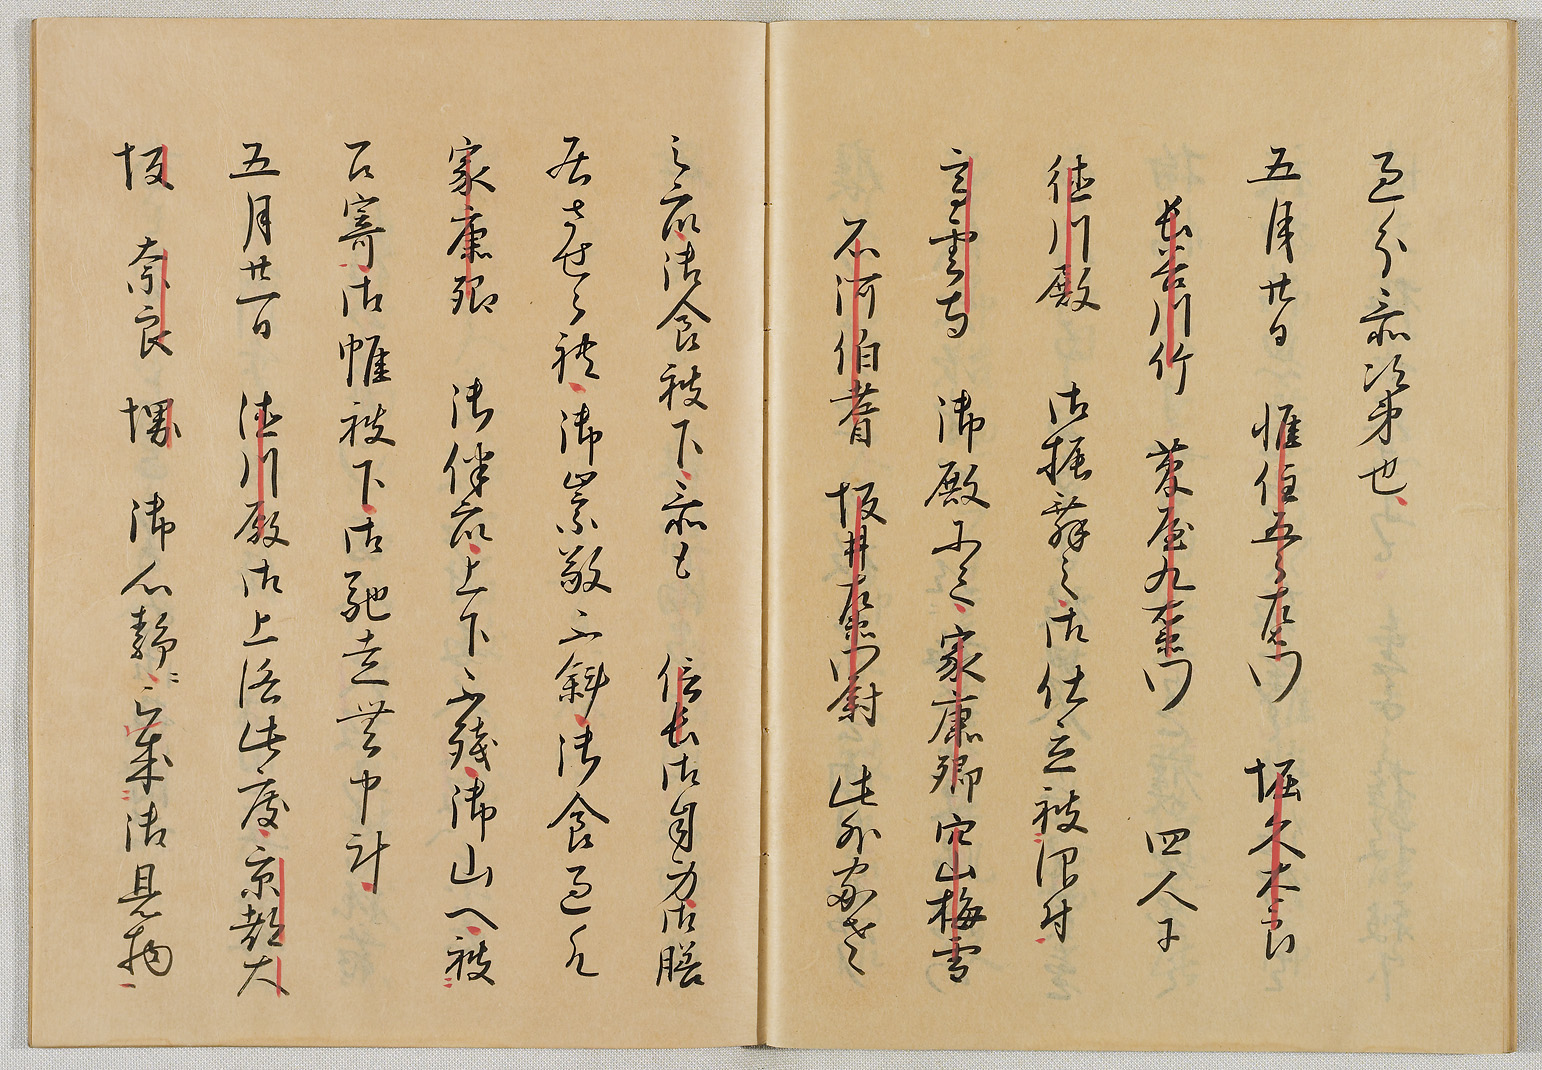 過分忝次第也
五月廿日 惟住五郎左衛門 堀久太郎
長谷川竹 菅屋九右衛門 四人ニ
徳川殿 御振舞之御仕立被仰付
高雲寺 御殿にて 家康卿 穴山梅雪
石河伯耆 坂井左衛門尉 此外家老
之衆御食被下忝も 信長御自身御膳
居させられ 御崇敬不斜御食過候て
家康卿 御伴衆上下不残御山へ被
召寄御帷被下御馳走無申計
五月廿一日 徳川殿御上洛此度京都大
坂 奈良 堺 御心静ニ被成御見物